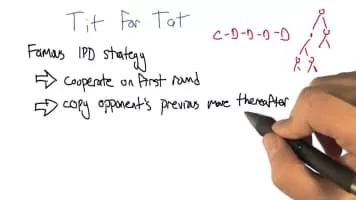 Tit for Tat
C-D-D-D-D
Famous IPD strategy
⇒ cooperate on first round
⇒ copy opponent's previous move thereafter